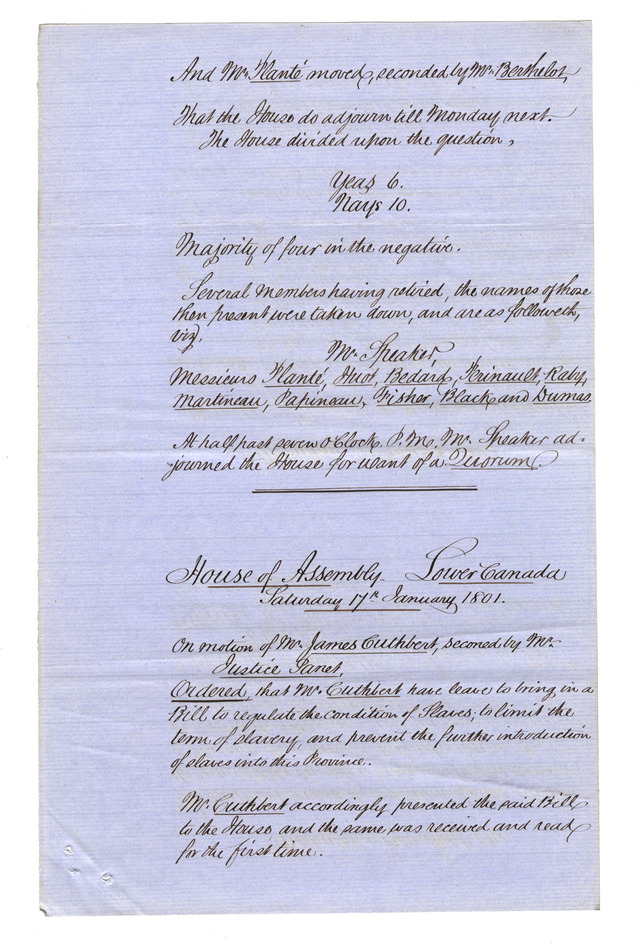 And Mr. Planté moved, seconded by Mr. Berthelot,
That the House do adjourn till Monday next.
The House divided upon the question,
Yeas 6.
Nays 10.
Majority of four in the negative.
Several Members having retired, the names of those
then present were taken down, and are as followeth,
viz.
Mr. Speaker,
Messieurs Planté, Huot, Bedard, Perinault, Raby,
Martineau, Papineau, Fisher, Black and Dumas.
At half past seven o'Clock P.M. Mr. Speaker ad-
journed the House for want of a Quorum.
House of Assembly Lower Canada
Saturday 17th January 1801.
On motion of Mr. James Cuthbert, seconed by Mr.
Justice Panet,
Ordered, that Mr. Cuthbert have leave to bring in a
Bill to regulate the condition of Slaves, to limit the
term of slavery, and prevent the further introduction
of slaves into this Province.
Mr. Cuthbert accordingly presented the said Bill
to the House and the same was received and read
for the first time.